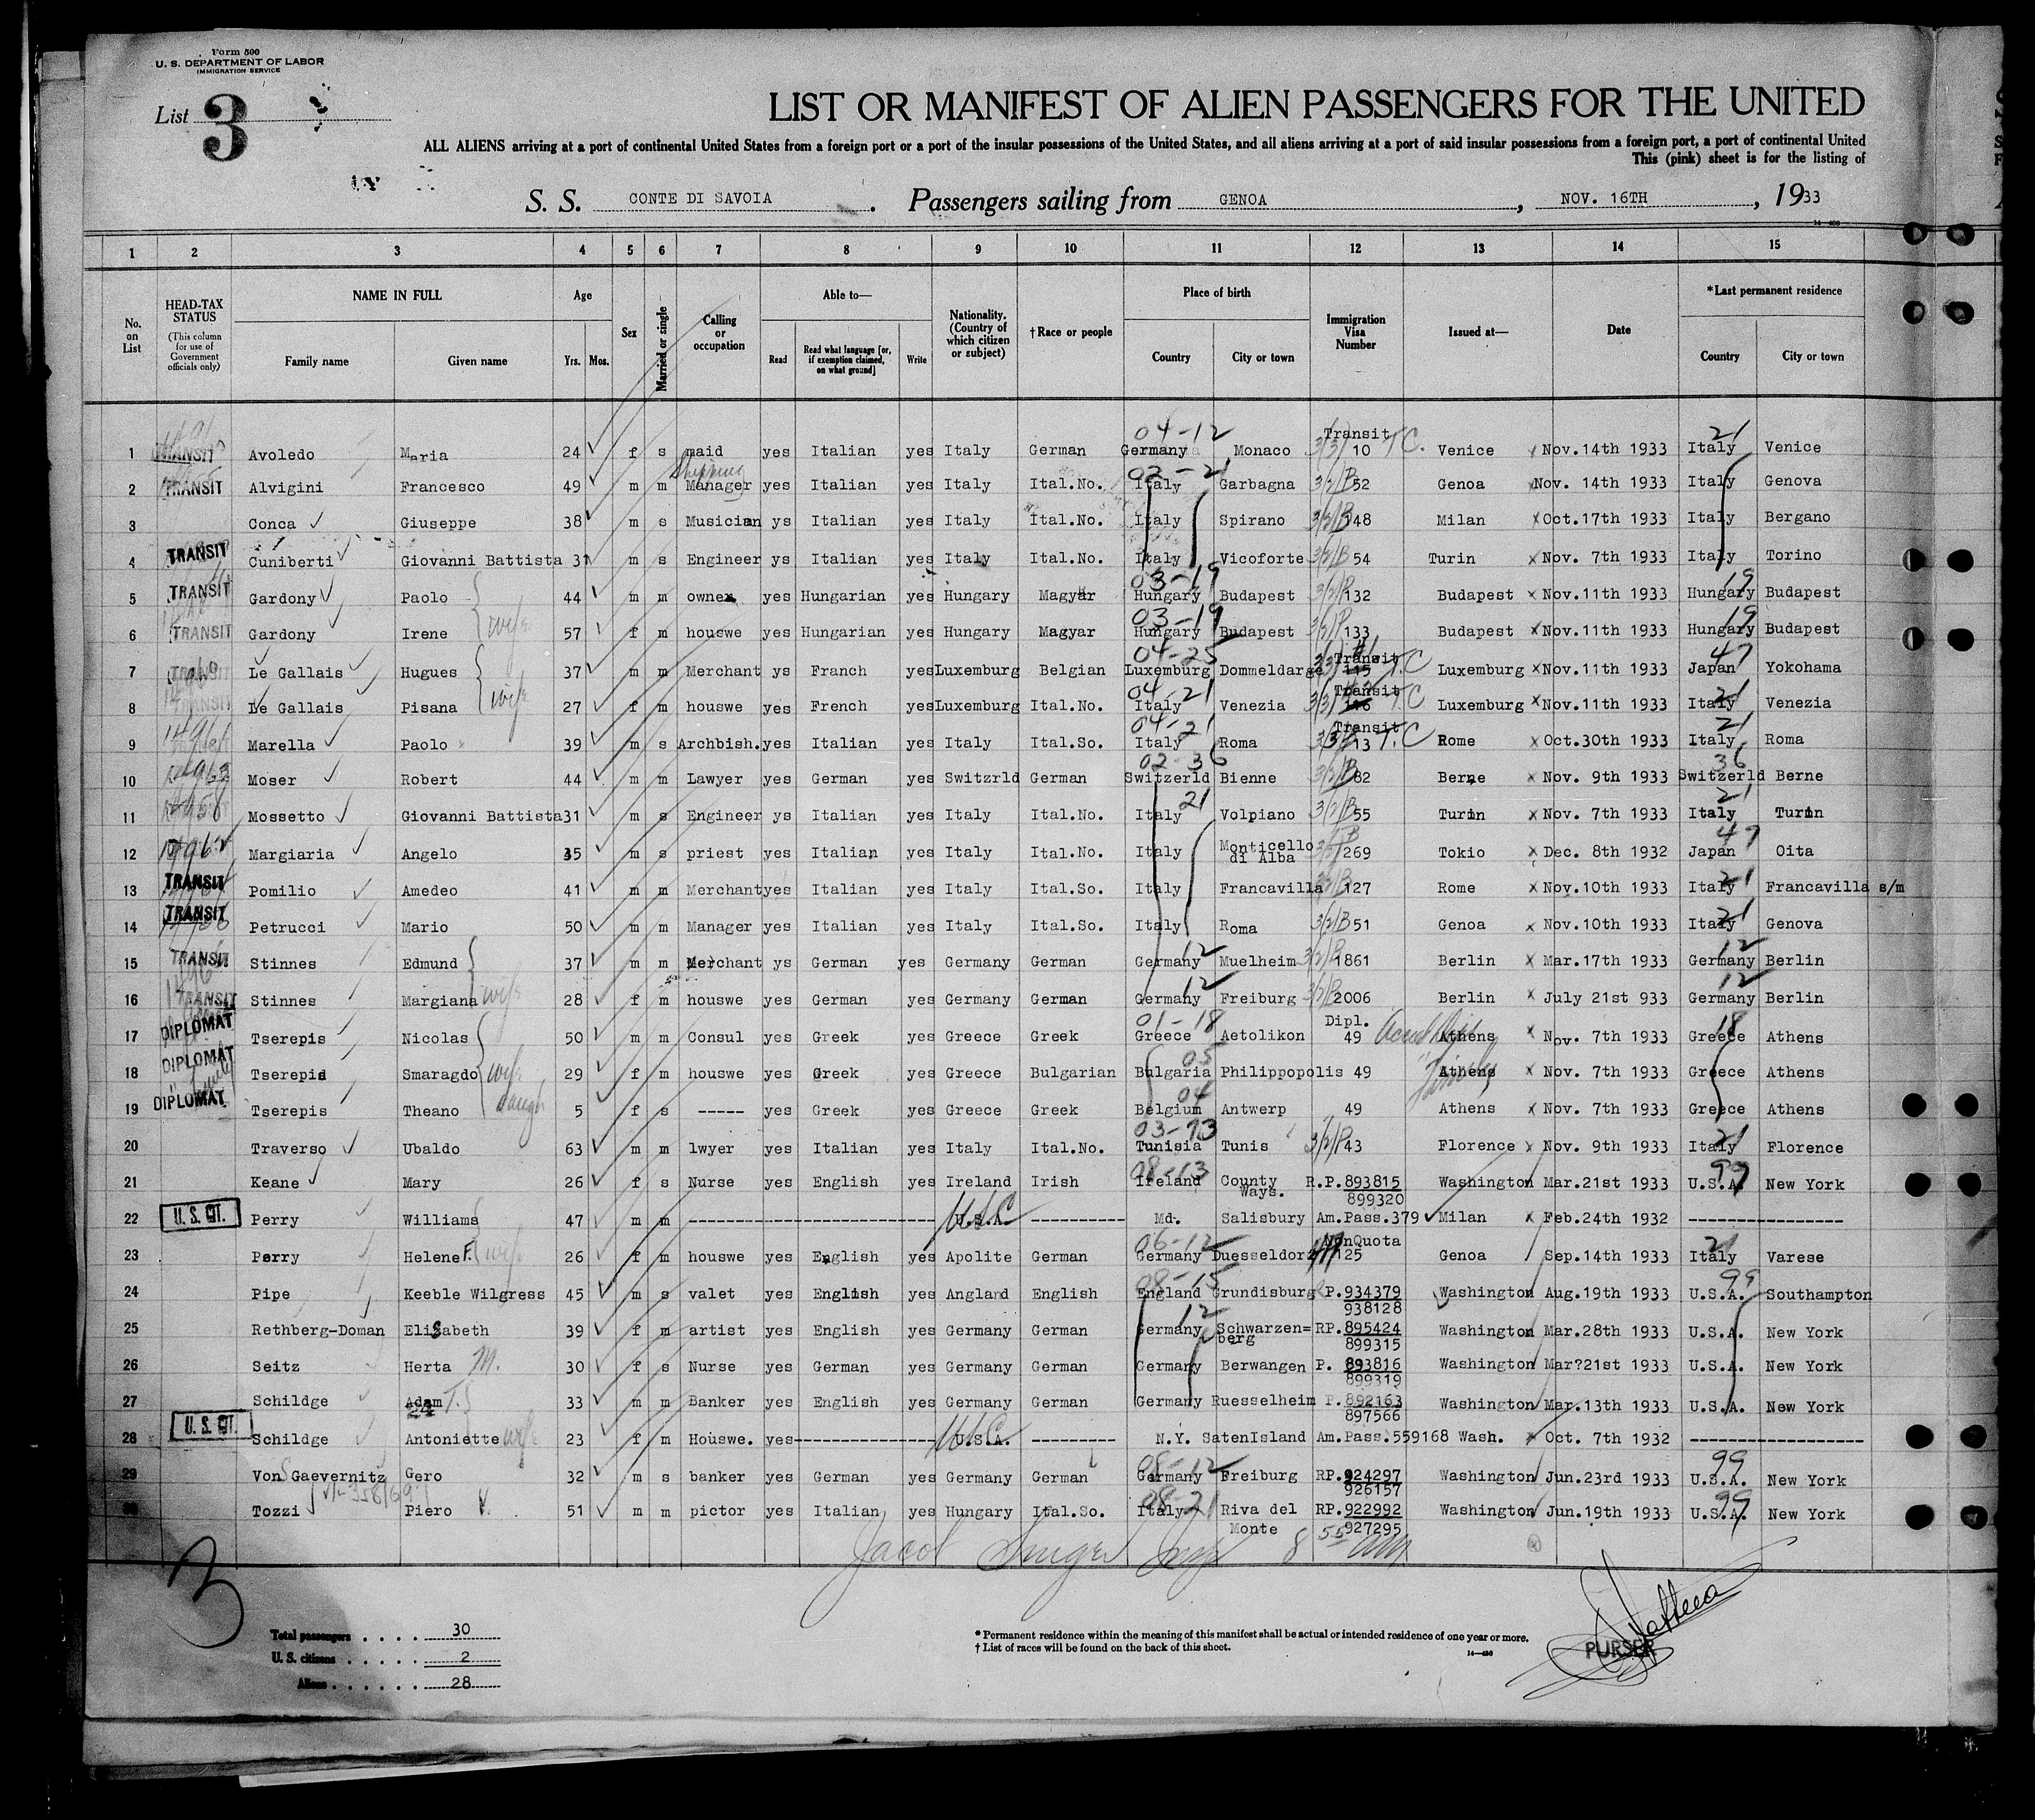 Form 500
U. S. DEPARTMENT OF LABOR
IMMIGRATION SERVICE
List 3
LIST OR MANIFEST OF ALIEN PASSENGERS FOR THE UNITED
ALL ALIENS arriving at a port of continental United States from a foreign port or a port of the insular possessions of the United States, and all aliens arriving at a port of said insular possessions from a foreign port, a port of continental United
This (pink) sheet is for the listing of
S. S. CONTE DI SAVOIA. Passengers sailing from GENOA, NOV. 16TH, 1933
1 2 3 4 5 6 7 8 9 10 11 12 13 14 15
No. on List
HEAD-TAX STATUS (This column for use of Government officials only)
NAME IN FULL Family name Given name
Age Yrs. Mos.
Sex
Married or single
Calling or occupation
Able to— Read Read what language [or, if exemption claimed, on what ground] Write
Nationality. (Country of which citizen or subject)
†Race or people
Place of birth Country City or town
Immigration Visa Number
Issued at—
Date
*Last permanent residence Country City or town
1 TRANSIT Avoledo Maria 24 f s maid yes Italian yes Italy German 04-12 Germany Monaco Transit 10 T.C. Venice Nov.14th 1933 21 Italy Venice
2 TRANSIT Alvigini Francesco 49 m m Shipping Manager yes Italian yes Italy Ital.No. 02-21 Italy Garbagna 3/2/P 52 Genoa Nov. 14th 1933 Italy Genova
3 Conca Giuseppe 38 m s Musician ys Italian yes Italy Ital.No. Italy Spirano 148 Milan Oct.17th 1933 Italy Bergano
4 TRANSIT Cuniberti Giovanni Battista 31 m s Engineer ys Italian yes Italy Ital.No. Italy Vicoforte 54 Turin Nov. 7th 1933 Italy Torino
5 TRANSIT Gardony Paolo 44 m m owner yes Hungarian yes Hungary Magyar 03-19 Hungary Budapest 132 Budapest Nov.11th 1933 19 Hungary Budapest
6 TRANSIT Gardony Irene wife 57 f m houswe yes Hungarian yes Hungary Magyar 03-19 Hungary Budapest 133 Budapest Nov.11th 1933 19 Hungary Budapest
7 Le Gallais Hugues 37 m m Merchant ys Franch yes Luxemburg Belgian 04-25 Luxemburg Dommeldarge Transit 115 T.C Luxemburg Nov.11th 1933 47 Japan Yokohama
8 TRANSIT Le Gallais Pisana wife 27 f m houswe yes French yes Luxemburg Ital.No. 04-21 Italy Venezia Transit 116 T.C Luxemburg Nov.11th 1933 21 Italy Venezia
9 Marella Paolo 39 m s Archbish. yes Italian yes Italy Ital.So. 04-21 Italy Roma Transit 13 T.C Rome Oct.30th 1933 21 Italy Roma
10 Moser Robert 44 m m Lawyer yes German yes Switzrld German 02-36 Switzerld Bienne 82 Berne Nov. 9th 1933 36 Switzerld Berne
11 Mossetto Giovanni Battista 31 m s Engineer ys Italian yes Italy Ital.No. 21 Italy Volpiano 55 Turin Nov. 7th 1933 21 Italy Turin
12 Margiaria Angelo 35 m s priest yes Italian yes Italy Ital.No. Italy Monticello di Alba 269 Tokio Dec. 8th 1932 47 Japan Oita
13 TRANSIT Pomilio Amedeo 41 m m Merchant yes Italian yes Italy Ital.So. Italy Francavilla 127 Rome Nov.10th 1933 21 Italy Francavilla s/m
14 TRANSIT Petrucci Mario 50 m m Manager yes Italian yes Italy Ital.So. Italy Roma 51 Genoa Nov.10th 1933 21 Italy Genova
15 TRANSIT Stinnes Edmund 37 m m Merchant ys German yes Germany German 12 Germany Muelheim 1861 Berlin Mar.17th 1933 12 Germany Berlin
16 TRANSIT Stinnes Margiana wife 28 f m houswe yes German yes Germany German 12 Germany Freiburg 2006 Berlin July 21st 933 12 Germany Berlin
17 DIPLOMAT Tserepis Nicolas 50 m m Consul yes Greek yes Greece Greek 01-18 Greece Aetolikon Dipl. 49 Athens Nov. 7th 1933 18 Greece Athens
18 DIPLOMAT Tserepis Smaragdo wife 29 f m houswe yes Greek yes Greece Bulgarian 05 Bulgaria Philippopolis 49 Athens Nov. 7th 1933 Greece Athens
19 DIPLOMAT Tserepis Theano daugh 5 f s ----- yes Greek yes Greece Greek 04 Belgium Antwerp 49 Athens Nov. 7th 1933 Greece Athens
20 Traverso Ubaldo 63 m m lwyer yes Italian yes Italy Ital.No. 03-73 Tunisia Tunis 3/2/P 43 Florence Nov. 9th 1933 21 Italy Florence
21 Keane Mary 26 f s Nurse yes English yes Ireland Irish 08-13 Ireland County Ways. R.P. 893815 899320 Washington Mar.21st 1933 99 U.S.A. New York
22 U. S. CIT. Perry Williams 47 m m ---------- U.S.A. ---------- Md. Salisbury Am.Pass.379 Milan Feb.24th 1932 ----------
23 Perry Helene F. wife 26 f m houswe yes English yes Apolite German 06-12 Germany Duesseldorf NonQuota 25 Genoa Sep.14th 1933 21 Italy Varese
24 Pipe Keeble Wilgress 45 m s valet yes English yes Anglard English 08-15 England Grundisburg P. 934379 938128 Washington Aug.19th 1933 99 U.S.A. Southampton
25 Rethberg-Doman EliSabeth 39 f m artist yes English yes Germany German 12 Germany Schwarzen= berg RP. 895424 899315 Washington Mar.28th 1933 U.S.A. New York
26 Seitz Herta M. 30 f s Nurse yes German yes Germany German Germany Berwangen P. 893816 899319 Washington Mar?21st 1933 U.S.A. New York
27 Schildge Adam T. 33 m m Banker yes English yes Germany German Germany Ruesselheim P. 892163 897566 Washington Mar.13th 1933 U.S.A. New York
28 U. S. CIT. Schildge Antoniette wife 23 f m Houswe. yes---------- U.S.A. ---------- N.Y. SatenIsland Am.Pass.559168 Wash. Oct. 7th 1932 ----------
29 Von Gaevernitz Gero 32 m s banker yes German yes Germany German 08-12 Germany Freiburg RP. 924297 926157 Washington Jun.23rd 1933 99 U.S.A. New York
30 Tozzi Piero 51 m m pictor yes Italian yes Hungary Ital.So. 08-21 Italy Riva del Monte RP. 922992 927295 Washington Jun.19th 1933 99 U.S.A. New York
3
Total passengers . . . . 30
U. S. citizens . . . . . . 2
Aliens . . . . . . . 28
* Permanent residence within the meaning of this manifest shall be actual or intended residence of one year or more.
† List of races will be found on the back of this sheet.
PURSER